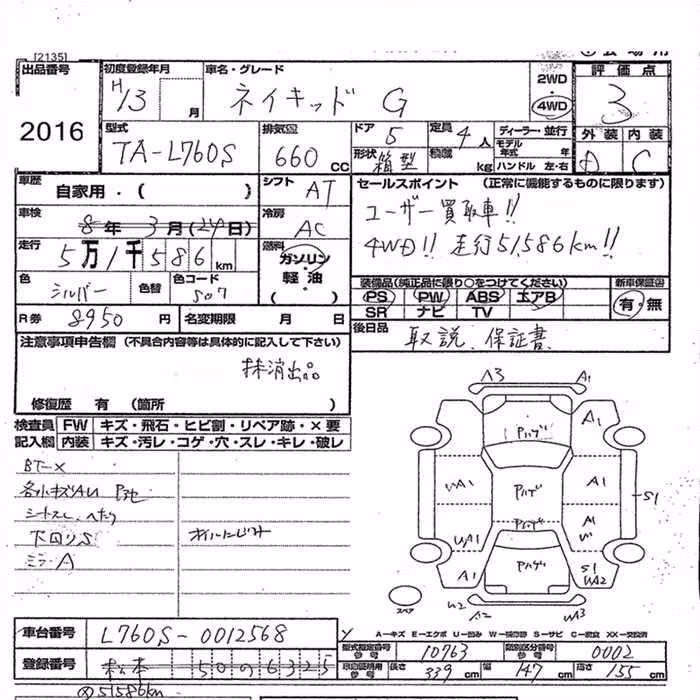 [2135]
出品番号 初度登録年月 車名・グレード 評価点
2016 H13 月 ネイキッド G 2WD・4WD 3
型式 排気量 ドア 定員 ディーラー・並行 外装 内装
TA-L760S 660 CC 5 4人 モデル年式 年 A C
形状 箱型 積載 kg ハンドル 左・右
車歴 シフト セールスポイント (正常に機能するものに限ります)
自家用・( ) AT ユーザー買取車!!
車検 8年3月(24日) 冷房 AC 4WD!! 走行51,586km!!
走行 5万1千586km 燃料 ガソリン・軽油・( )
色 シルバー 色替 色コード S07
装備品(純正品に限り○をつけてください) 新車保証書
PS PW ABS エアB 有・無
SR ナビ TV
R券 8950円 名変期限 月 日
後日品 取説、保証書
注意事項申告欄 (不具合内容等は具体的に記入して下さい)
抹消出品
修復歴 有 (箇所 )
検査員記入欄 FW キズ・飛石・ヒビ割・リペア跡・×要
内装 キズ・汚レ・コゲ・穴・スレ・キレ・破レ
BT-×
各小キズAU
下回りS オイルにじみ
ミラーA
A3 A1
Pハゲ A1
UA1 Pハゲ A1 S1
Pハゲ
UA1
A1 Pハゲ S1 UA2
スペア U2 A2 UA3
A-キズ E-エクボ U-凹み S-サビ
車台番号 L760S-0012568
型式指定番号 参考 10763 類別区分番号 参考 0002
登録番号 松本 50 の 6325
長さ 339cm 幅 147cm 高さ 155cm
51586km